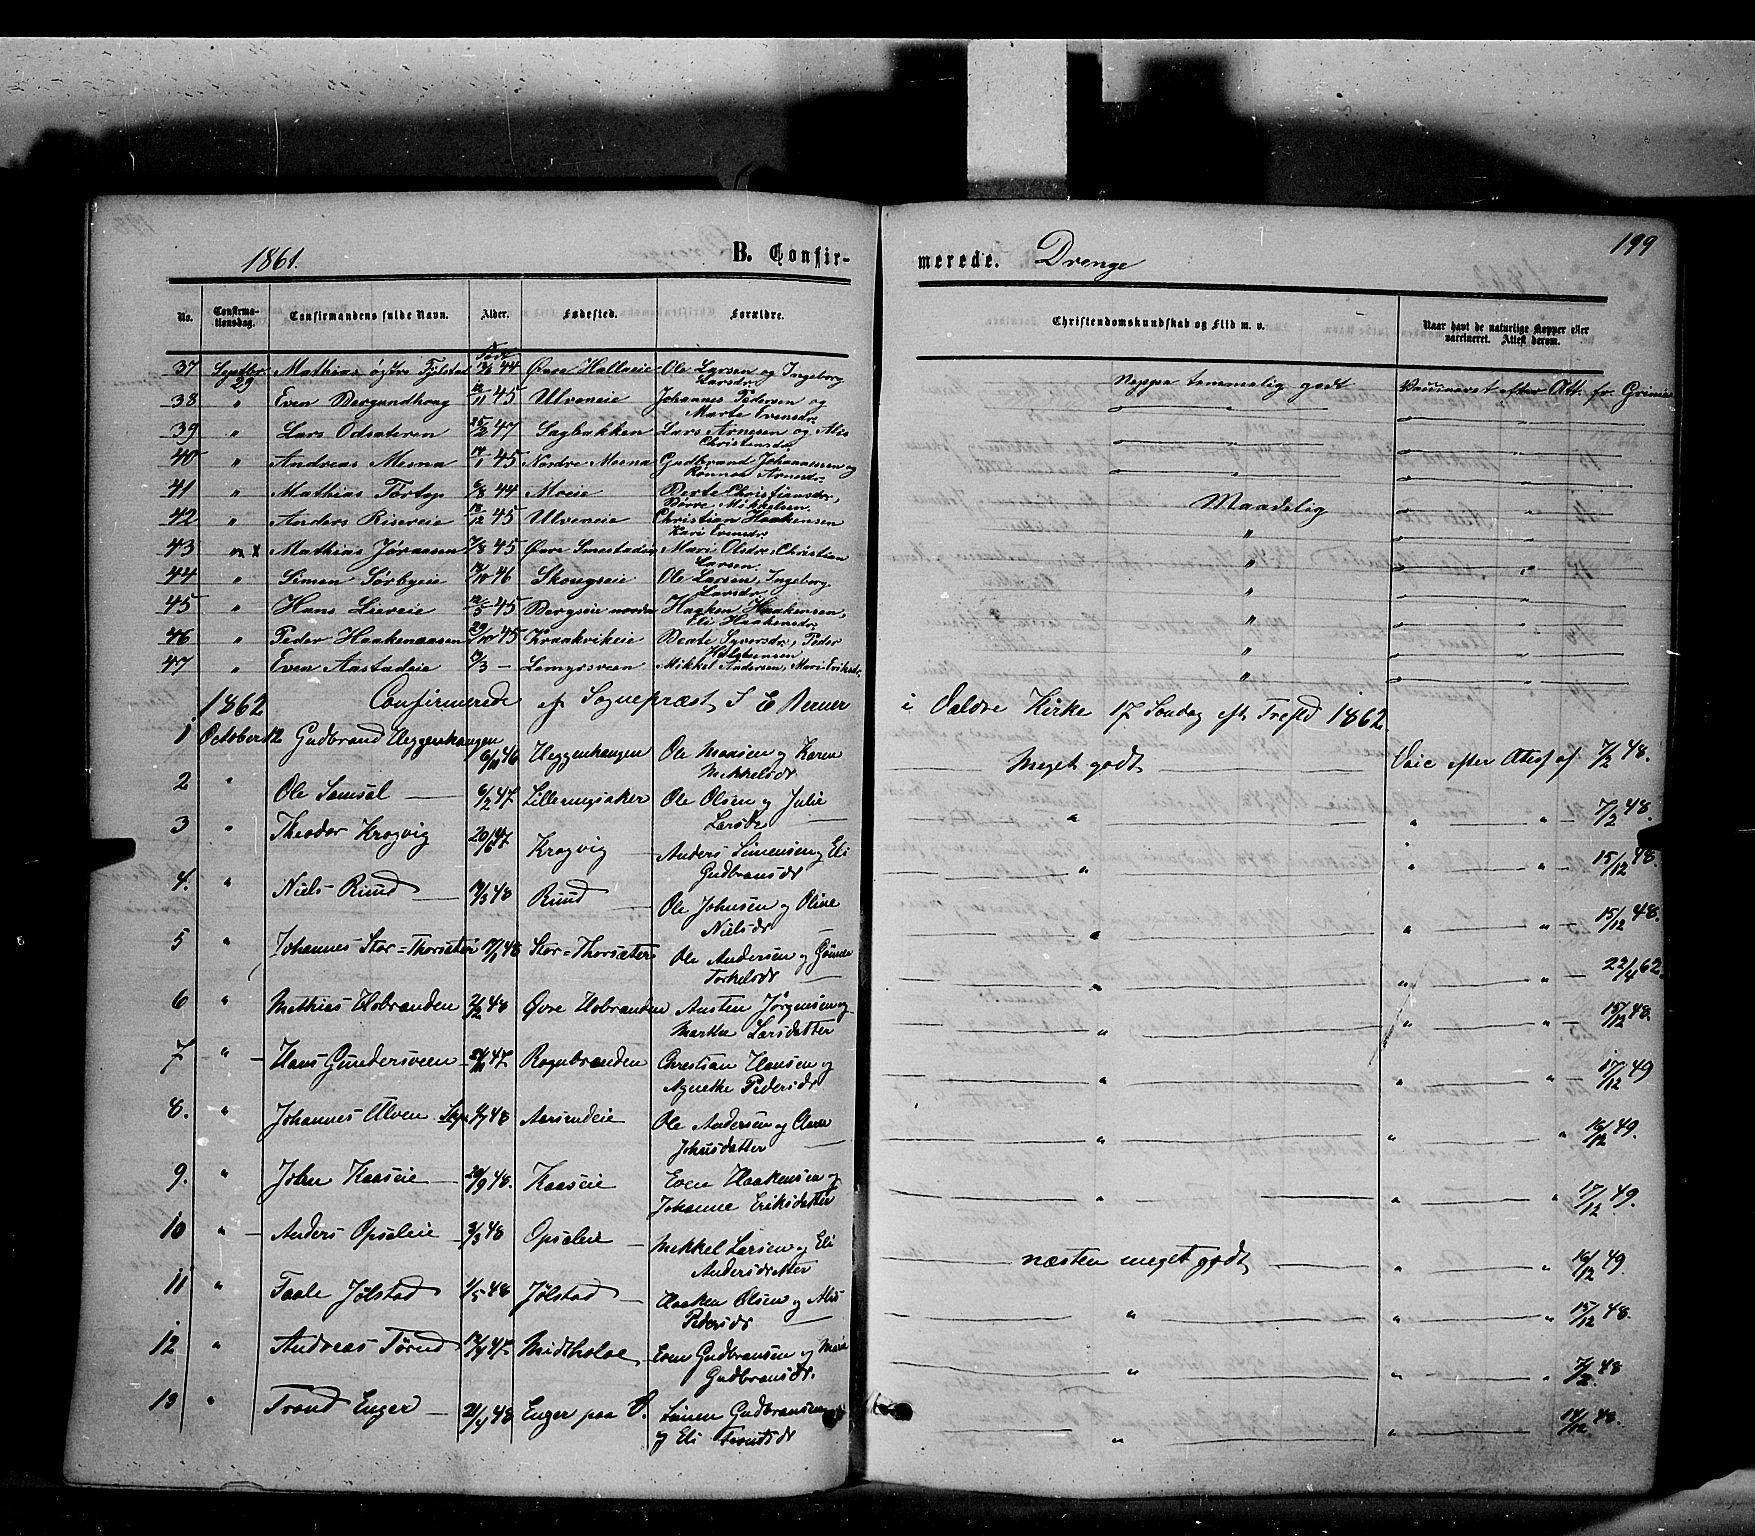 199
1861.
B. Confir-
merede. Drenge
No.
Confirma-
tionsdag.
Confirmandens fulde Navn.
Alder.
Fødested.
Forældre.
Christendomskundskab og Flid m. v.
Naar havt de naturlige Kopper eller
vaccineret. Attest derom.
Født
37 Septbr 29 Mathias 44 Øvre Ole Larsen og Ingeborg
Larsdr
Neppe temmelig godt Vaccineret efter Att. fr.
38 " Even Bergundhoug 12/11 45 Ulveneie Johannes Pedersen og
Marte Evensdr
39 " Lars Odsæteren 25/2 47 Sagbakken Lars Arnesen og Alis
Christensdr
40 " Andreas Mesna 45 Nordre Mesna Gudbrand Johannessen og
Rønnou Arnesdr
41 " Mathias Tørtop 6/8 44 Moeie Berte Christiansdr,
Børre Mikkelsen
42 " Anders Risereie 45 Ulveneie Christian Haakensen
Kari Evensdr
Maadelig
43 " x Mathias Jøraasen 7/8 45 Øvre Smestadeie Mari Olsdr, Christian
Larsen
44 " Simen Sørbyeie 46 Skougseie Ole Larsen, Ingeborg
Larsdr
45 " Hans Liereie 45 Bergseie nordre Haaken Haakensen,
Eli Haakensdr
46 " Peder Haakenaasen 29/10 45 Kraakvikeie Berte Syversdr, Peder
Halstensen
47 " Even Aastadeie – Mikkel Andersen, Mari Eriksdr,
1862 Confirmerede af Sognepræst J E Berner
i Kirke 17 Søndag eft Trefld 1862.
1 October 12 Gudbrand Heggenhaugen 46 Heggenhaugen Ole Monsen og Karen
Mikkelsdr
Meget godt Vacc efter Attest af 7/2 48.
2 " Ole Samsal 6/2 47. Lilleringsaker Ole Olsen og Julie
Larsdr
" " " 7/2 48.
3 " Theodor Krogvig 47 Krogvig Anders Simensen og Eli
Gudbransdr
" " " 15/12 48.
4. " Niels Ruud 48 Ruud Ole Johnsen og Oline
Nielsdr
" " " 15/12 48.
5 " Johannes Stor=Thorsæter 48 Stor=Thorsæter Ole Andersen og
Torkelsdr
" " " 22/4 62.
6 " Mathias Hobranden 2/2 48 Øvre Hobranden Austen Jørgensen og
Marthe Larsdatter
" " " 15/12 48.
7 " Hans Gundersveen 47. Rognbranden Christian Hansen og
Agnethe Pedersdr
" " " 17/12 49
8. " Johannes Ulven 48 Aarsendeie Ole Andersen og
Johnsdatter
" " " 16/12 49.
9. " John Kaaseie 48. Kaaseie Even Haakensen og
Johanne Eriksdatter
" " " 17/12 49.
10 " Anders Opsaleie 48 Opsaleie Mikkel Larsen og Eli
Andersdatter
næsten meget godt " " 16/12 49
11 " Faale Jølstad 1/5 48 Jølstad Haaken Olsen og Alis
Pedersdr
" " " 15/12 48.
12 " Andreas Tørud 47. Midtholoe Even Gudbransen og Mari
Gudbransdr.
" " " 7/2 48
13 " Trond Enger 21/4 48 Enger paa Ø. Simen Gudbransen
og Eli
" " " 48.